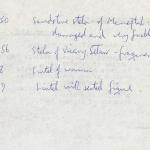 50 Sandstone stela of
damaged and very
56 Stela of Viceroy Setau - fragment
8 Lintel of woman
9 Lintel with seated figure